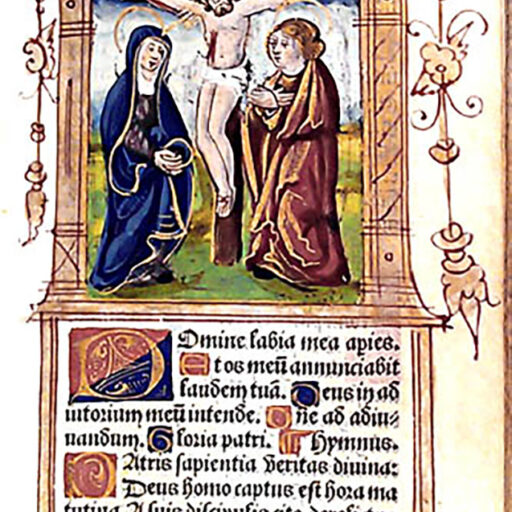 Domine labia mea apies.
Et os meū annunciabit
laudem tuā. Deus in ad
iutorium meū intende. Dne ad adiu-
uandum. Gloria patri. Hymnus.
Patris sapientia veritas diuina:
Deus homo captus est hora ma
tutina. A suis discipulis cito